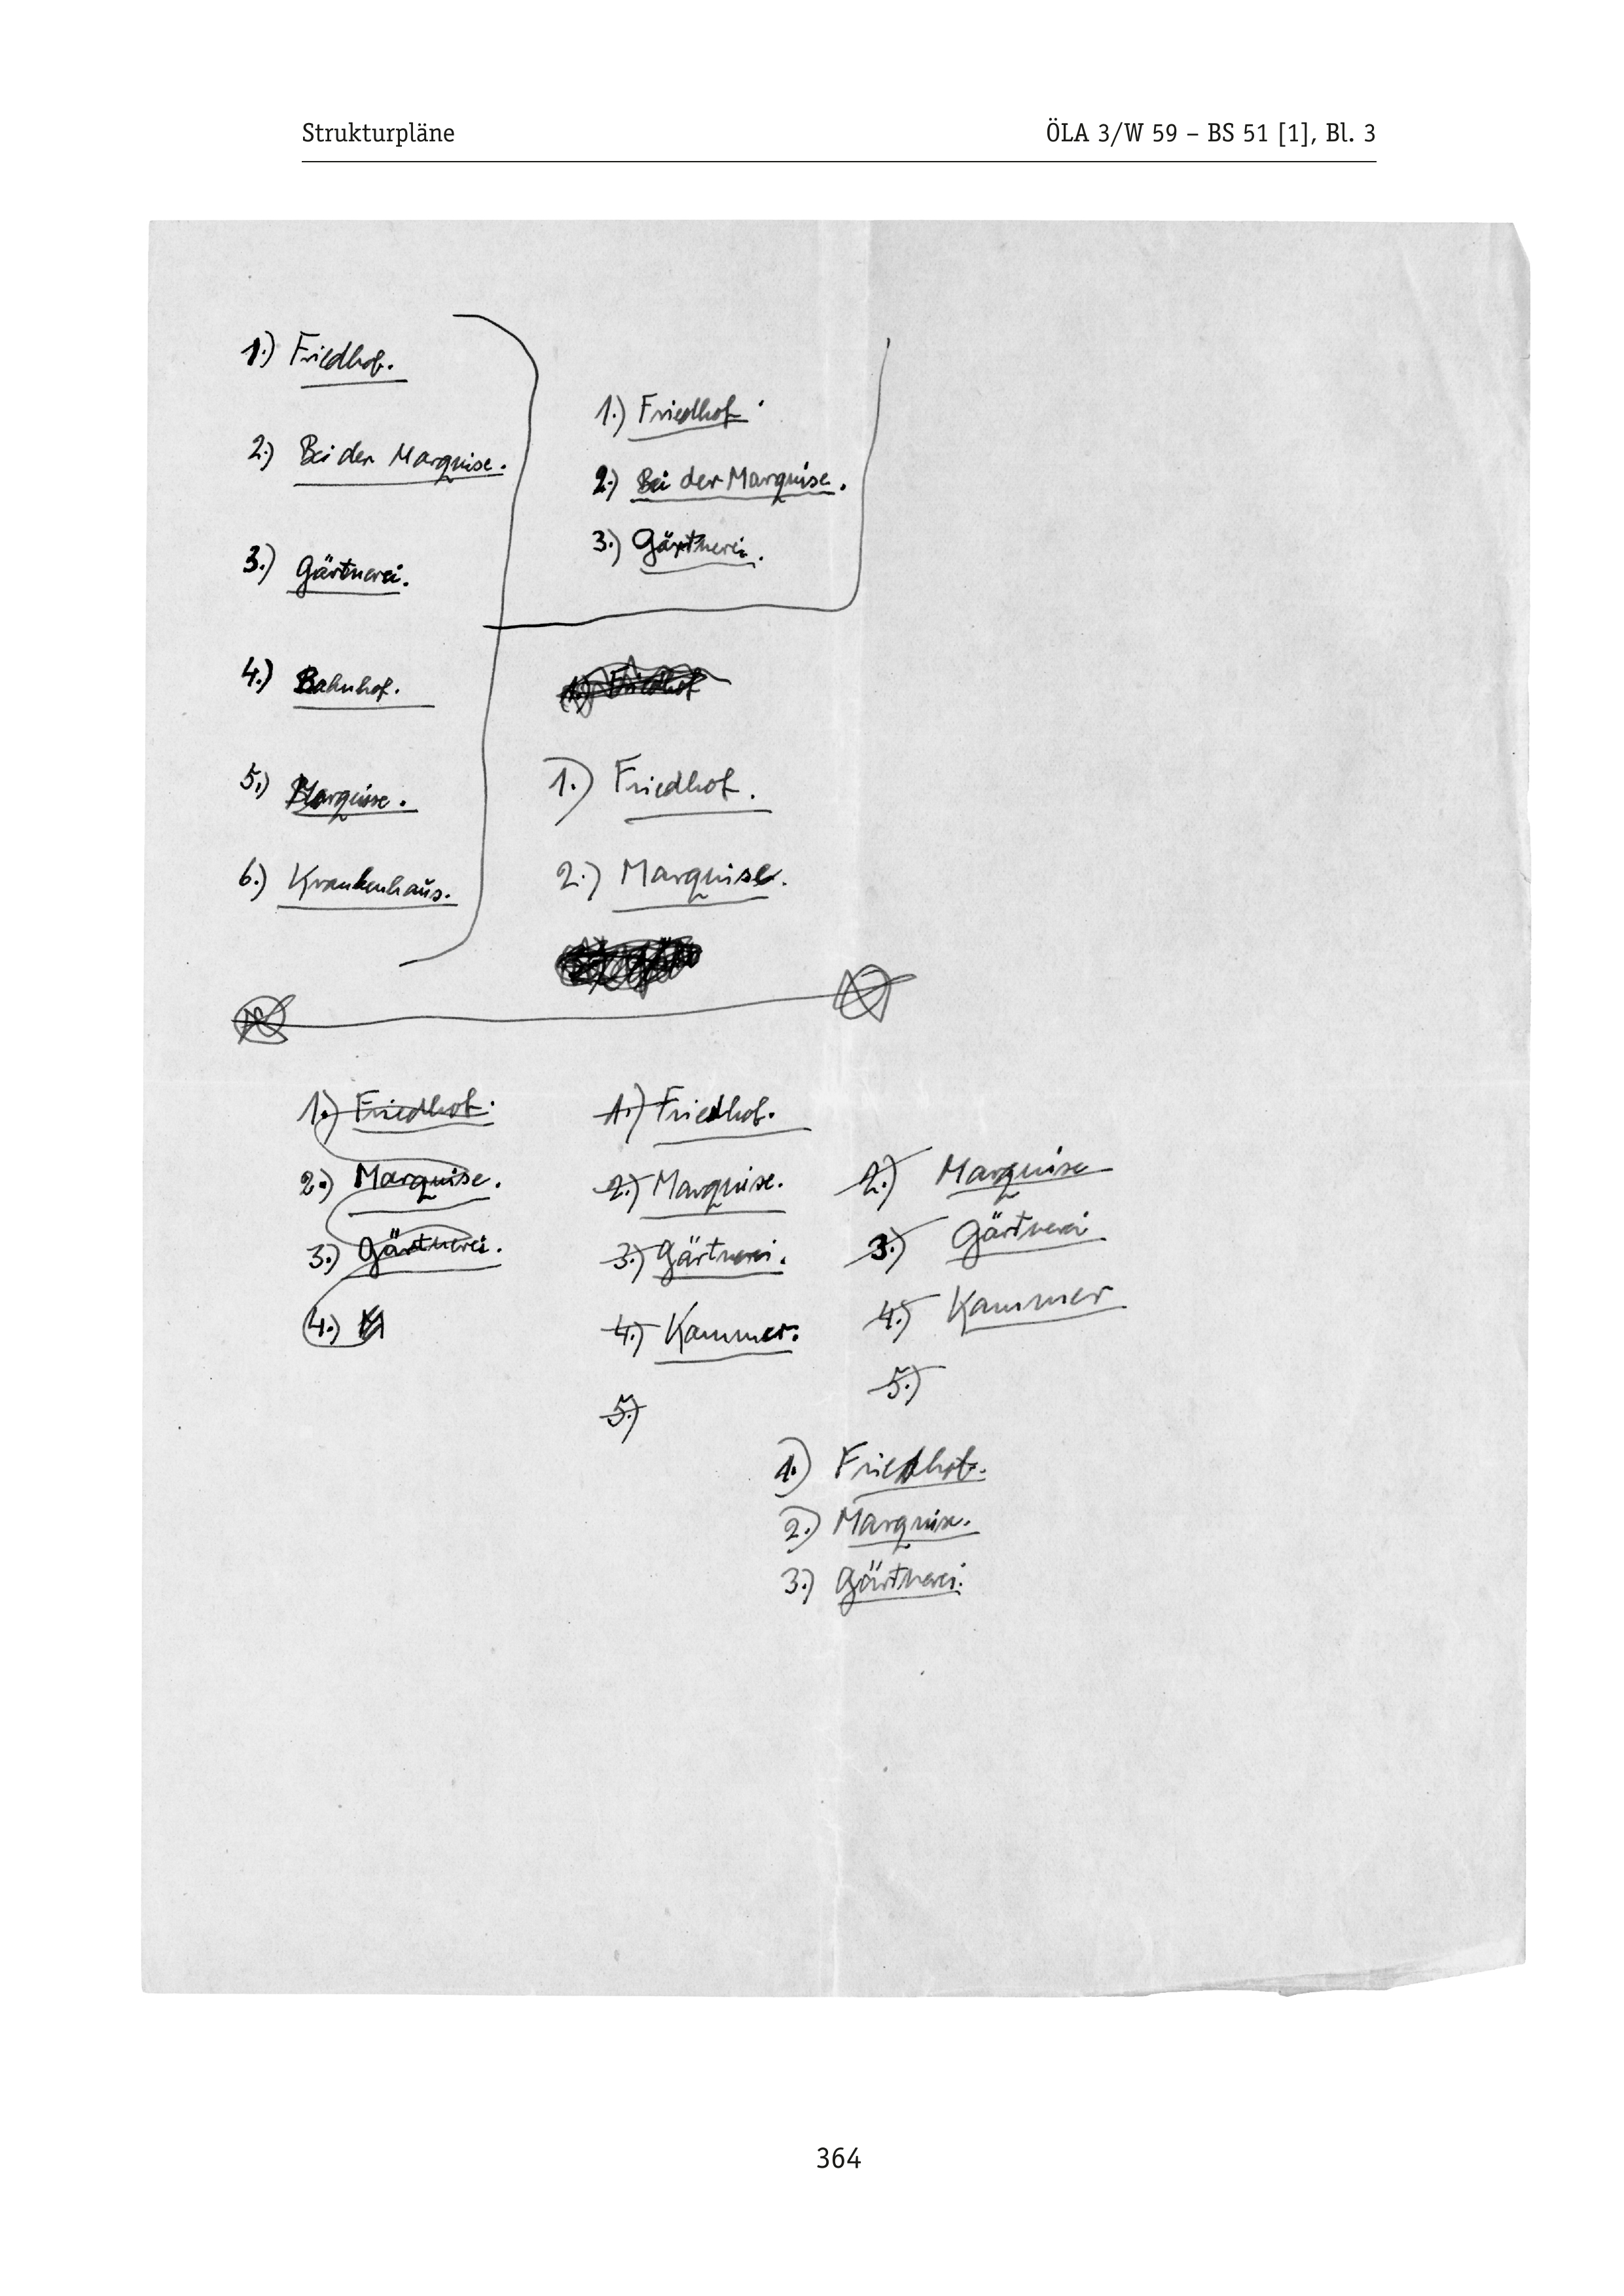 Strukturpläne
ÖLA 3/W 59 – BS 51 [1], Bl. 3
1.) Friedhof.
2.) Bei der Marquise.
3.) Gärtnerei.
4.) Bahnhof.
5.) Marquise.
6.) Krankenhaus.
1.) Friedhof.
2.) Bei der Marquise.
3.) Gärtnerei.
1.) Friedhof
1.) Friedhof.
2.) Marquise.
1.) Friedhof.
2.) Marquise.
3.) Gärtnerei.
4.)
1.) Friedhof.
2.) Marquise.
3.) Gärtnerei.
4.) Kammer.
5.)
2.) Marquise
3.) Gärtnerei
4.) Kammer
5.)
1.) Friedhof.
2.) Marquise.
3.) Gärtnerei.
364